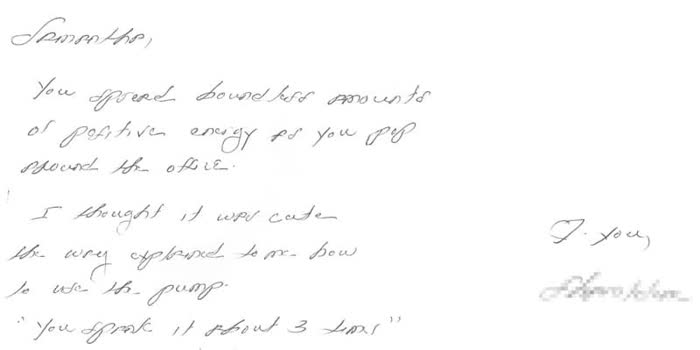 Samantha,
You spread boundless amounts
of positive energy as you pop
around the office.
I thought it was cute
the way explained to me how
to use the pump.
"You spank it about 3 times"
T. you,